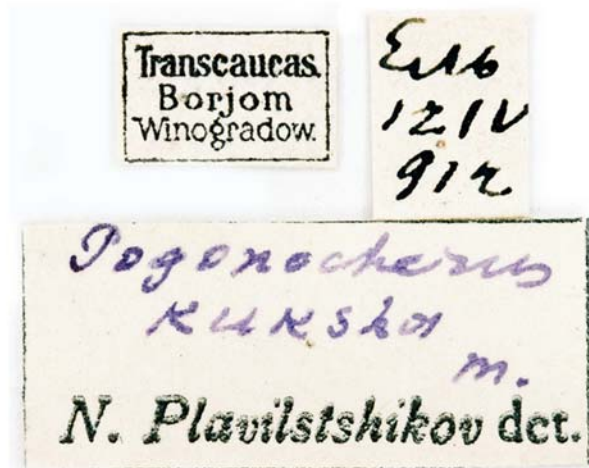 Transcaucas.
Borjom
Winogradow.
Ель
12 IV
912
Pogonocherus
kuksha
m.
N. Plavilstshikov det.